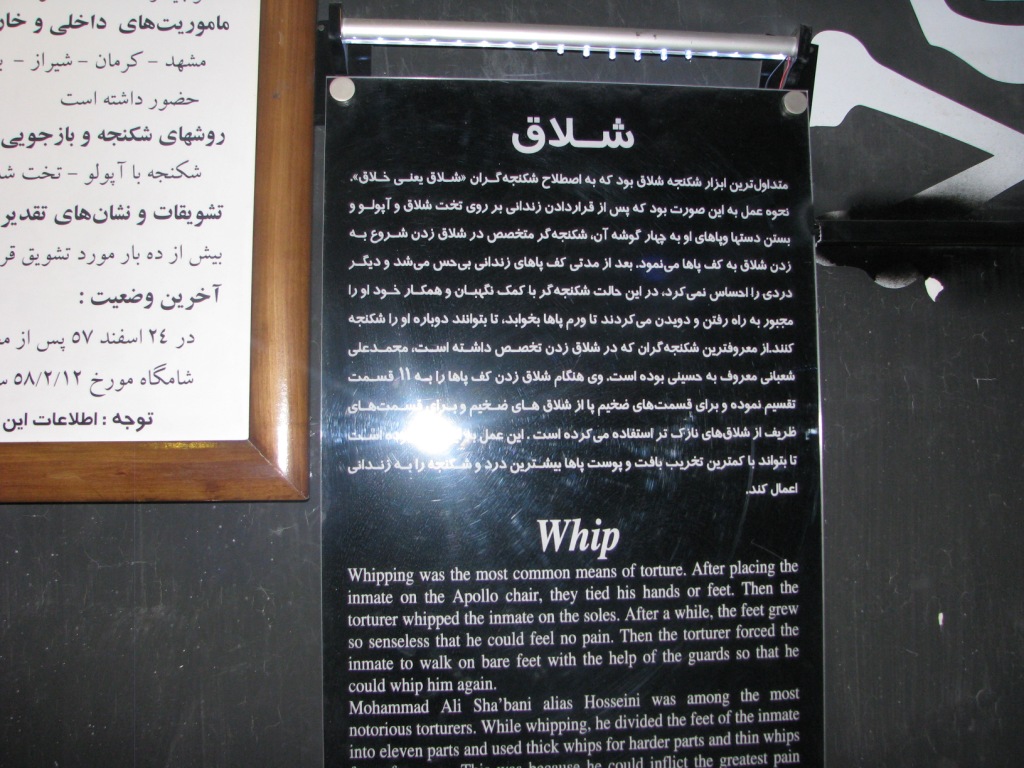 ماموریت‌های داخلی و خار
مشهد - کرمان - شیراز -
حضور داشته است
روشهای شکنجه و بازجویی
شکنجه با آپولو - تخت شـ
تشویقات و نشان‌های تقدیر
بیش از ده بار مورد تشویق قر
آخرین وضعیت :
در ۲۴ اسفند ۵۷ پس از مـ
شامگاه مورخ ۵۸/۲/۱۲ سـ
توجه : اطلاعات این
شـلاق
متداول‌ترین ابزار شکنجه شلاق بود که به اصطلاح شکنجه‌گـران «شـلاق یعنـی خـلاق».
نحوه عمل به این صورت بود که پس از قراردادن زندانی بر روی تخت شلاق و آپولـو و
بستن دستها وپاهای او به چهار گوشه آن، شکنجه‌گر متخصص در شلاق زدن شروع به
زدن شلاق به کف پاها می‌نمود. بعد از مدتی کف پاهای زندانی بی‌حس می‌شد و دیگـر
دردی را احساس نمی‌کرد، در این حالت شکنجه‌گر با کمک نگهبـان و همکـار خـود او را
مجبور به راه رفتن و دویدن می‌کردند تا ورم پاها بخوابد، تا بتوانند دوباره او را شکنجه
کنند.از معروفترین شکنجه‌گران که در شلاق زدن تخصـص داشـته اسـت، محمـدعلی
شعبانی معروف به حسینی بوده است. وی هنگام شلاق زدن کف پاها را به ۱۱ قسـمت
تقسیم نموده و برای قسمت‌های ضخیم پا از شلاق های ضـخیم و بـرای قسـمت‌هـای
ظریف از شلاق‌های نازک تر استفاده می‌کرده است . این عمل بوده اسـت
تا بتواند با کمترین تخریب بافت و پوست پاها بیشـترین درد و شـکنجه را بـه زندانی
اعمال کند.
Whip
Whipping was the most common means of torture. After placing the
inmate on the Apollo chair, they tied his hands or feet. Then the
torturer whipped the inmate on the soles. After a while, the feet grew
so senseless that he could feel no pain. Then the torturer forced the
inmate to walk on bare feet with the help of the guards so that he
could whip him again.
Mohammad Ali Sha'bani alias Hosseini was among the most
notorious torturers. While whipping, he divided the feet of the inmate
into eleven parts and used thick whips for harder parts and thin whips
This was because he could inflict the greatest pain